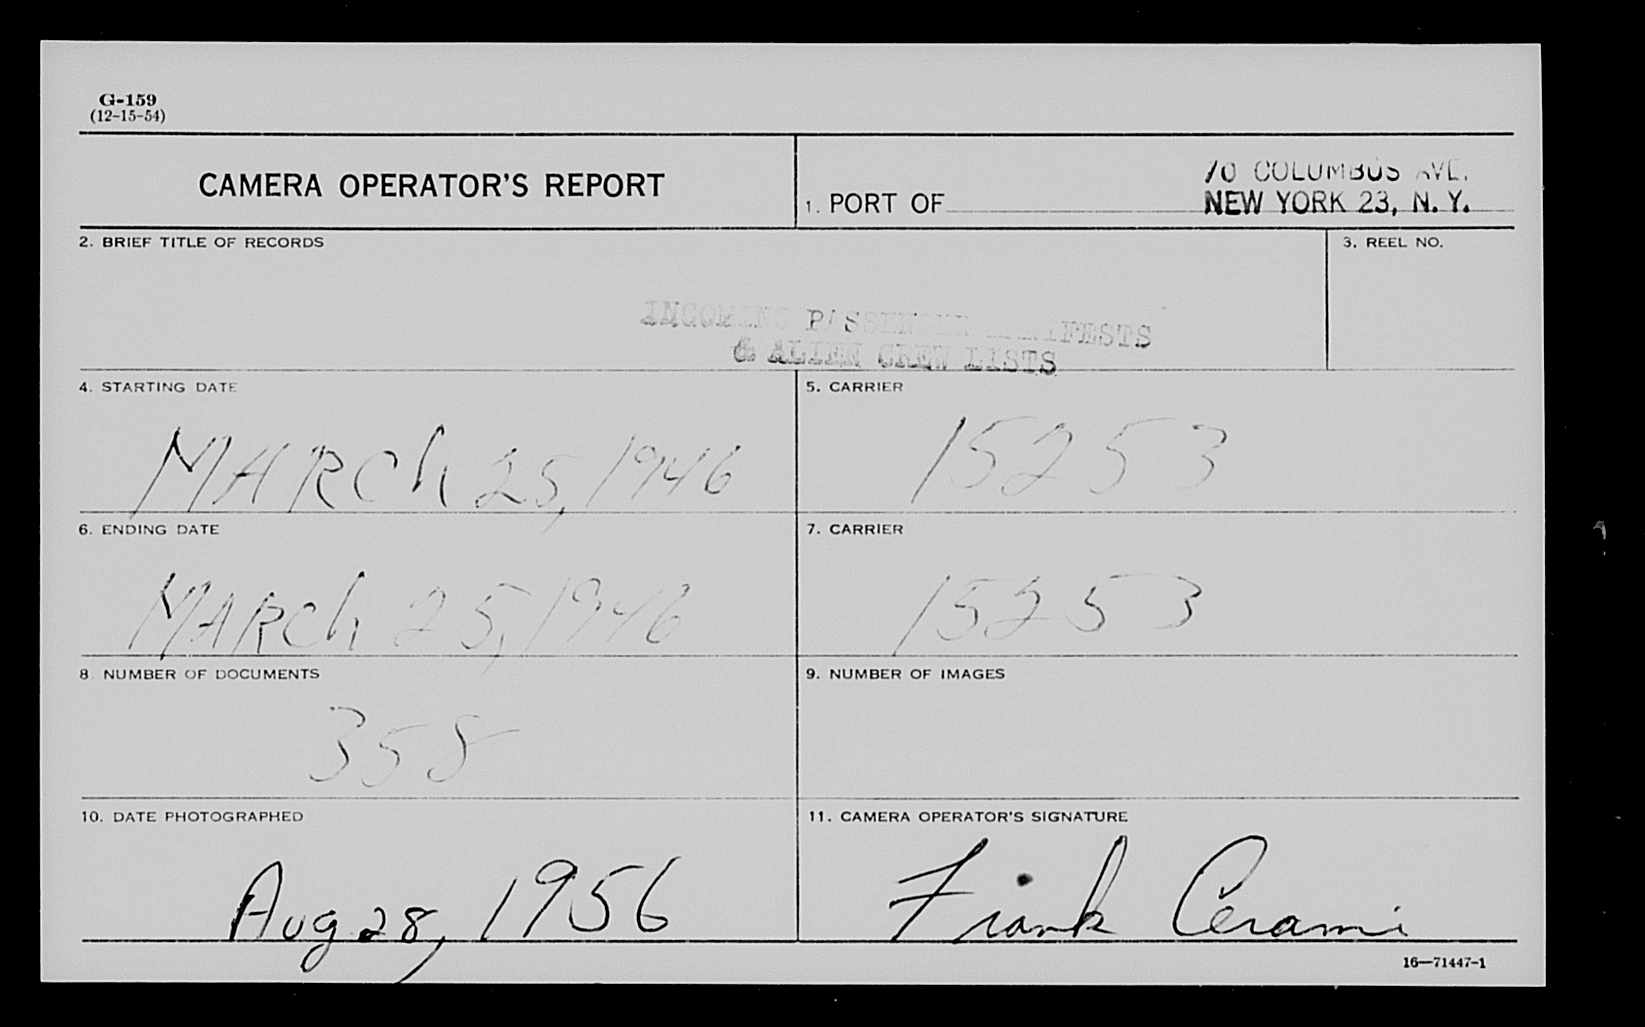 G-159
(12-15-54)
CAMERA OPERATOR'S REPORT
70 COLUMBUS AVE.
1. PORT OF NEW YORK 23, N. Y.
2. BRIEF TITLE OF RECORDS
3. REEL NO.
INCOMING PASSENGER MANIFESTS
& ALIEN CREW LISTS
4. STARTING DATE
MARCh 25, 1946
5. CARRIER
15253
6. ENDING DATE
MARCh 25, 1946
7. CARRIER
15253
8 NUMBER OF DOCUMENTS
358
9. NUMBER OF IMAGES
10. DATE PHOTOGRAPHED
Aug 28, 1956
11. CAMERA OPERATOR'S SIGNATURE
Frank Cerami
16—71447-1